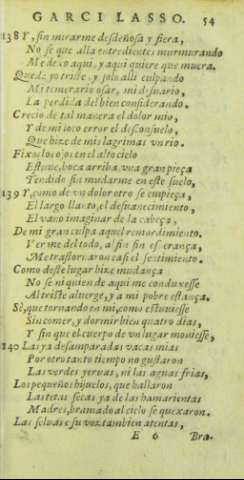 GARCI LASSO. 54
138 Y, sin mirarme desdeñosa y fiera,
No sè que alla entredientes murmurando
Me dexo aqui, y aqui quiere que muera.
Quede yo triste, y solo alli culpando
Mi temerario osar, mi desuario,
La perdida del bien considerando.
Crecio de tal manera el dolor mio,
Y de mi loco error el desconsuelo,
Que hize de mis lagrimas vn rio.
Fixos los ojos en el alto cielo
Estuue, boca arriba vna gran pieça
Tendido sin mudarme en este suelo,
139 Y, como de vn dolor otro se empieça,
El largo llanto, el desuanecimiento,
El vano imaginar de la cabeça,
De mi gran culpa aquel remordimiento.
Verme del todo, al fin sin esperança,
Me trastornaron casi el sentimiento.
Como deste lugar hize mudança
No sè ni quien de aqui me conduxesse
Al triste aluerge, y a mi pobre estança.
Sè, que tornando en mi, como estuuiesse
Sin comer, y dormir bien quatro dias,
Y sin que el cuerpo de vn lugar mouiesse,
140 Las ya desamparadas vacas mias
Por otro tanto tiempo no gustaron
Las verdes yeruas, ni las aguas frias,
Los pequeños hijuelos, que hallaron
Las tetas secas ya de las hambrientas
Madres, bramado al cielo se quexaron.
Las seluas a su voz tambien atentas,
E 6 Bra-